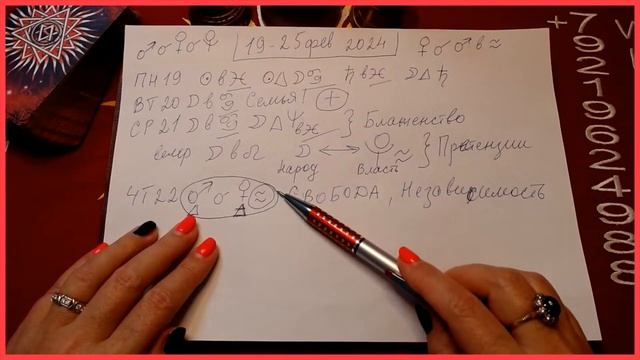 ♂☌♀☌♇ 19-25 фев 2024 ♀☌♂ в ♒
ПН 19 ☉ в ♓ ☉△☽♋ ♄ в ♓ ☽△♄
ВТ 20 ☽ в ♋ Семья! +
СР 21 ☽ в ♋ ☽△♆ в ♓ } Блаженство
вечер ☽ в ♌ ☽ ↔ ♇ ♒ } Претензии
Народ Власть
ЧТ 22 ♂☌♀ ♒ СВОБОДА, Независимость
+79219624988